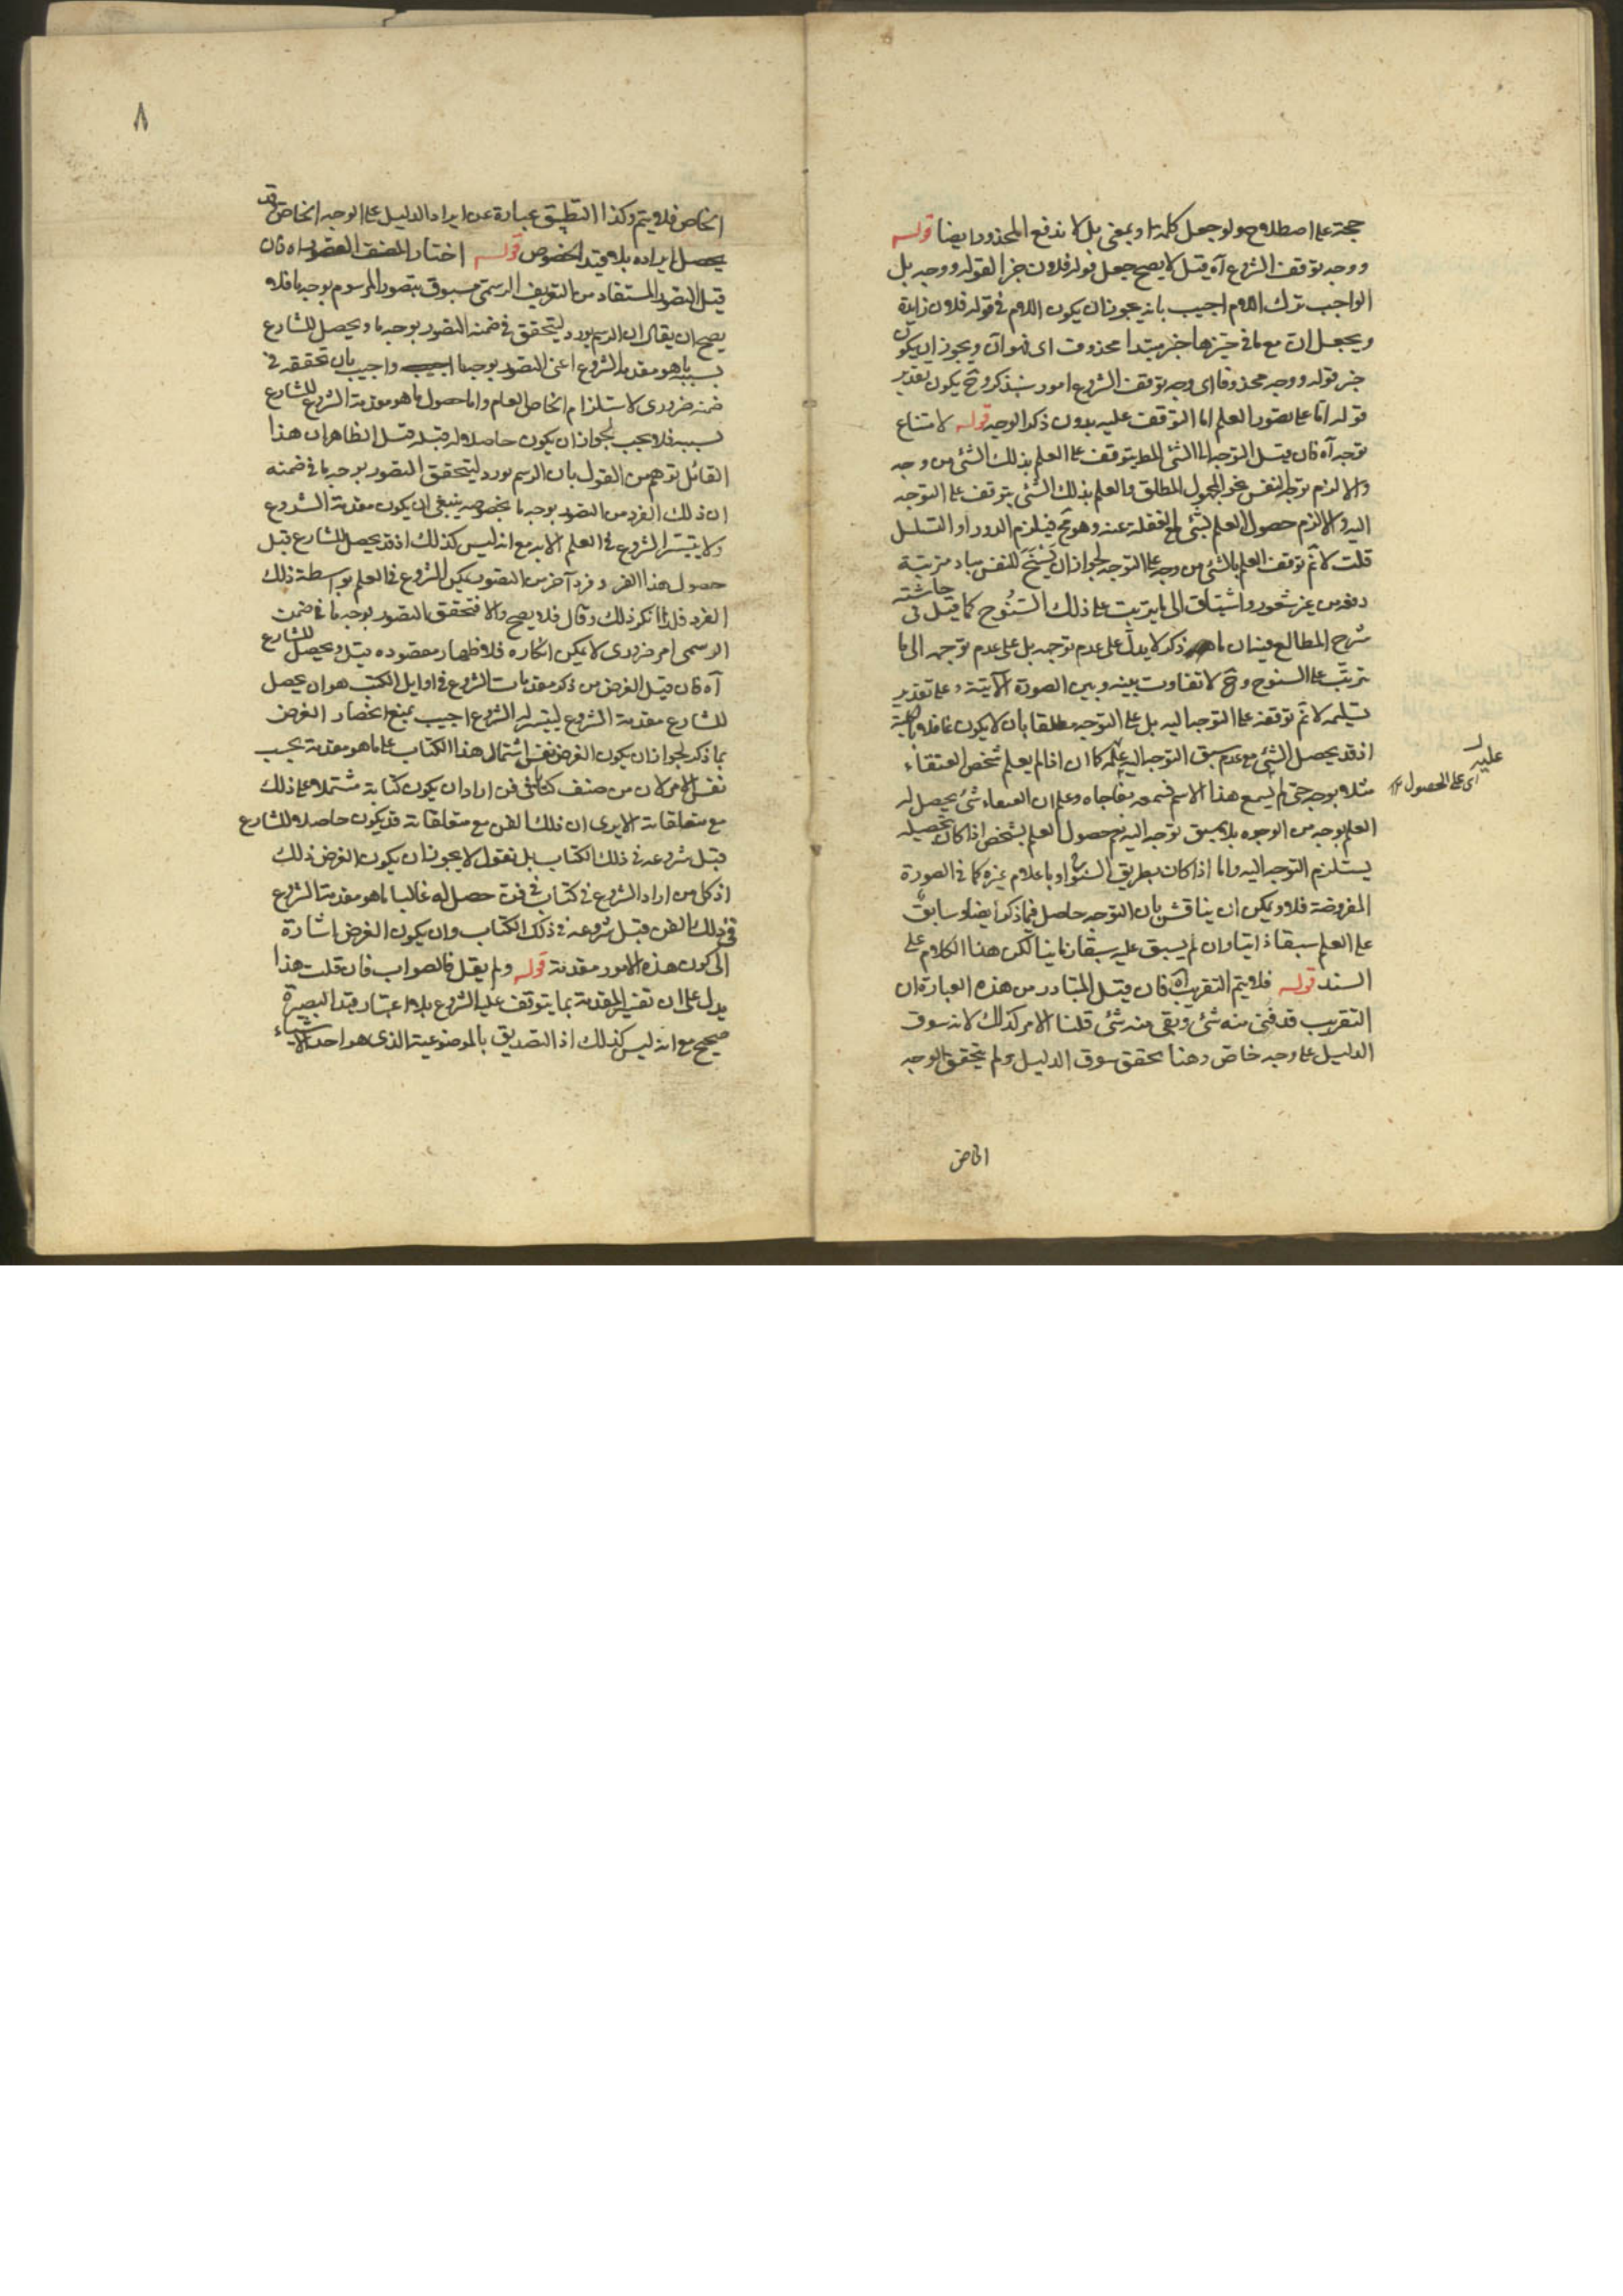 حجة على اصطلاحهم ولو جعل كلمة او بمعنى بل لاندفع المحذور ايضا قوله
ووجه توقف الشروع آه قيل لا يصح جعل قوله فلان خبرا لقوله ووجه بل
الواجب ترك اللام اجيب بانه يجوز ان يكون اللام في قوله فلان زايدة
ويجعل ان مع ما في حيزها خبر مبتدأ محذوف اى فهو ان ويجوز ان يكون
خبر قوله ووجه محذوفا اى وجه توقف الشروع امور سنذكر وح يكون تقدير
قوله اما على تصور العلم اما التوقف عليه بدون ذكر الوجه قوله لامتناع
توجه آه فان قيل التوجه الى الشئ المط يتوقف على العلم بذلك الشئ من وجه
والا لزم توجه النفس نحو المجهول المطلق والعلم بذلك الشئ يتوقف على التوجه
اليه والا لزم حصول العلم بشئ مع الغفلة عنه وهو مح فيلزم الدور او التسلسل
قلت لا نم توقف العلم بالشئ من وجه على التوجه لجواز ان يسنح للنفس مباد مرتبة
دفعة من غير شعور واشتياق الى ما يترتب على ذلك السنوح كما قيل في حاشية
شرح المطالع فيه ان ما ذكر لا يدل على عدم توجه بل على عدم توجهه الى ما
ترتب على السنوح وح لا تفاوت بينه وبين الصورة الآتية وعلى تقدير
تسليمه لا نم توقفه على التوجه اليه بل على التوجه مطلقا بان لا يكون غافلا بالكلية
اذ قد يحصل الشئ مع عدم سبق التوجه اليه بعلمه كما ان اذا لم يعلم شخص العنقاء
مثلا بوجه حتى لم يسمع هذا الاسم فسمعه مفاجاة وعلم ان العنقاء شئ يحصل له
العلم بوجه من الوجوه بلا سبق توجه اليه نعم حصول العلم بشخص اذا كان بتحصيله
يستلزم التوجه اليه واما اذا كان بطريق السنوح او باعلام غيره كما في الصورة
المفروضة فلا ويمكن ان يناقش بان التوجه حاصل فيما ذكر ايضا وسابق
على العلم سبقا ذاتيا وان لم يسبق عليه سبقا زمانيا لكن هذا الكلام على
السند قوله فلا يتم التقريب آه فان قيل المتبادر من هذه العبارة ان
التقريب قد فنى منه شئ وبقى منه شئ قلنا الامر كذلك لانه سوق
الدليل على وجه خاص وهنا تحقق سوق الدليل ولم يتحقق الوجه
الخاص
عليه
اى على الحصول
٨
الخاص فلا يتم وكذا التطبيق عبارة عن ايراد الدليل على الوجه الخاص قد
يحصل ايراده بلا قيد الخصوص قوله اختار المصنف التصور آه فان
قيل التصور المستفاد من التعريف الرسمى مسبوق بتصور المرسوم بوجه ما فلا
يصح ان يقال ان الرسم يورد ليتحقق في ضمنه التصور بوجه ما ويحصل للشارع
بسببه ما هو مقدمة الشروع اعنى التصور بوجه ما اجيب واجيب بان تحققه في
ضمنه ضرورى لاستلزام الخاص العام واما حصول ما هو مقدمة الشروع للشارع
بسببه فلا يجب لجواز ان يكون حاصلا له قبله قيل الظاهر ان هذا
القائل توهم من القول بان الرسم يورد ليتحقق التصور بوجه ما في ضمنه
ان ذلك الفرد من التصور بوجه ما بخصوصه ينبغى ان يكون مقدمة الشروع
ولا يتيسر الشروع في العلم الا به مع انه ليس كذلك اذ قد يحصل للشارع قبل
حصول هذا الفرد فرد آخر من التصور يمكن الشروع في العلم بواسطة ذلك
الفرد فلذا انكر ذلك وقال فلا يصح والا فتحقق التصور بوجه ما في ضمن
الرسمى امر ضرورى لا يمكن انكاره فلا ظهار مقصوده قيل ويحصل للشارع
آه فان قيل الغرض من ذكر مقدمات الشروع في اوايل الكتب هو ان يحصل
للشارع مقدمة الشروع ليتيسر له الشروع اجيب بمنع انحصار الغرض
بما ذكر لجواز ان يكون الغرض نفس اشتمال هذا الكتاب على ما هو مقدمة بحسب
نفس الامر لان من صنف كتابا في فن اراد ان يكون كتابه مشتملا على ذلك
مع متعلقاته الا يرى ان ذلك الفن مع متعلقاته قد يكون حاصلا للشارع
قبل شروعه في ذلك الكتاب بل نقول لا يجوز ان يكون الغرض ذلك
اذ كل من اراد الشروع في كتاب في فن حصل له غالبا ما هو مقدمة الشروع
في ذلك الفن قبل شروعه في ذلك الكتاب وان يكون الغرض اشارة
الى كون هذه الامور مقدمة قوله ولم يقل فالصواب فان قلت هذا
يدل على ان تفسير المقدمة بما يتوقف عليه الشروع بلا اعتبار قيد البصيرة
صحيح مع انه ليس كذلك اذ التصديق بالموضوعية الذى هو احد الاشياء